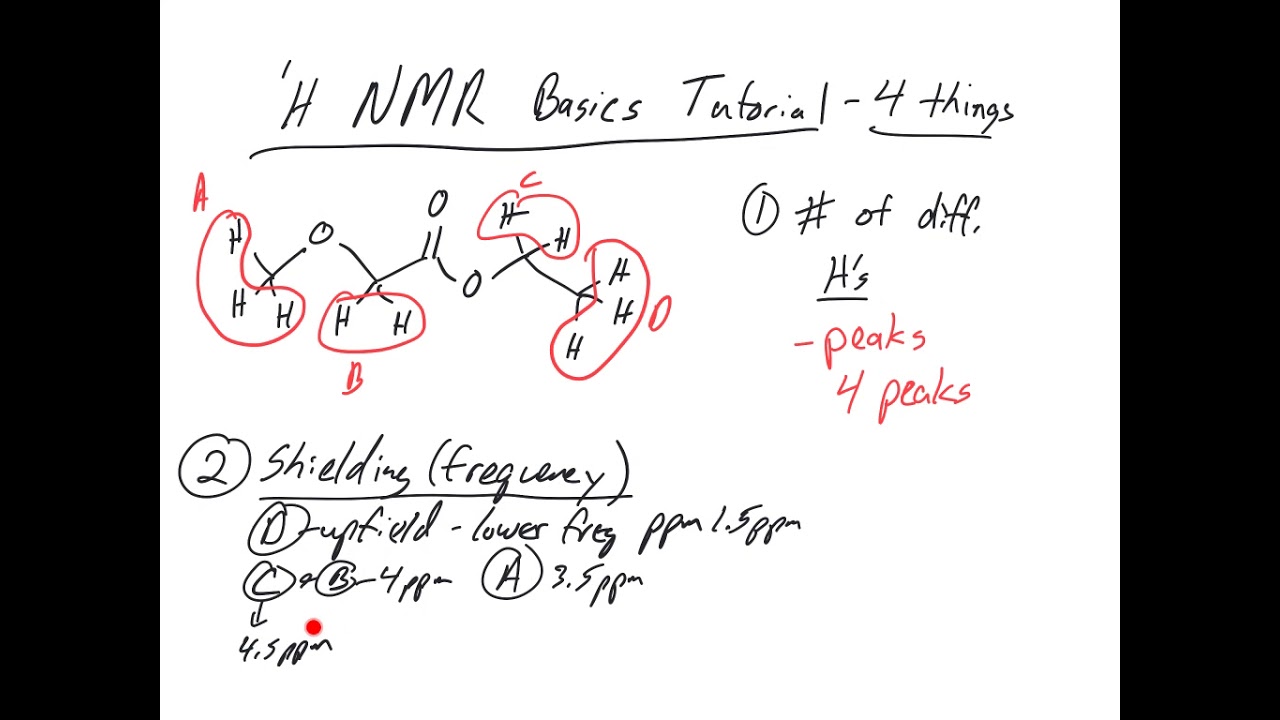 'H NMR Basics Tutorial - 4 things
A
C
H
O
O
H
H
① # of diff.
H's
H
H
O
H
H
H
H
H
D
B
- peaks
4 peaks
② Shielding (frequency)
Ⓓ - upfield - lower freq ppm 1.5ppm
Ⓒ & Ⓑ - 4ppm Ⓐ 3.5ppm
↓
4.5ppm